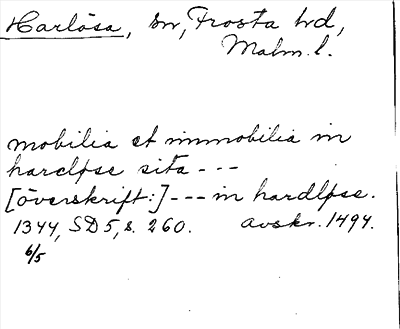 Harlösa, sn, Frosta hd,
Malm. l.
mobilia et immobilia in
hardløse sita - - -
[överskrift:] - - - in hardløse.
1344, SD 5, s. 260. avskr. 1494.
6/5